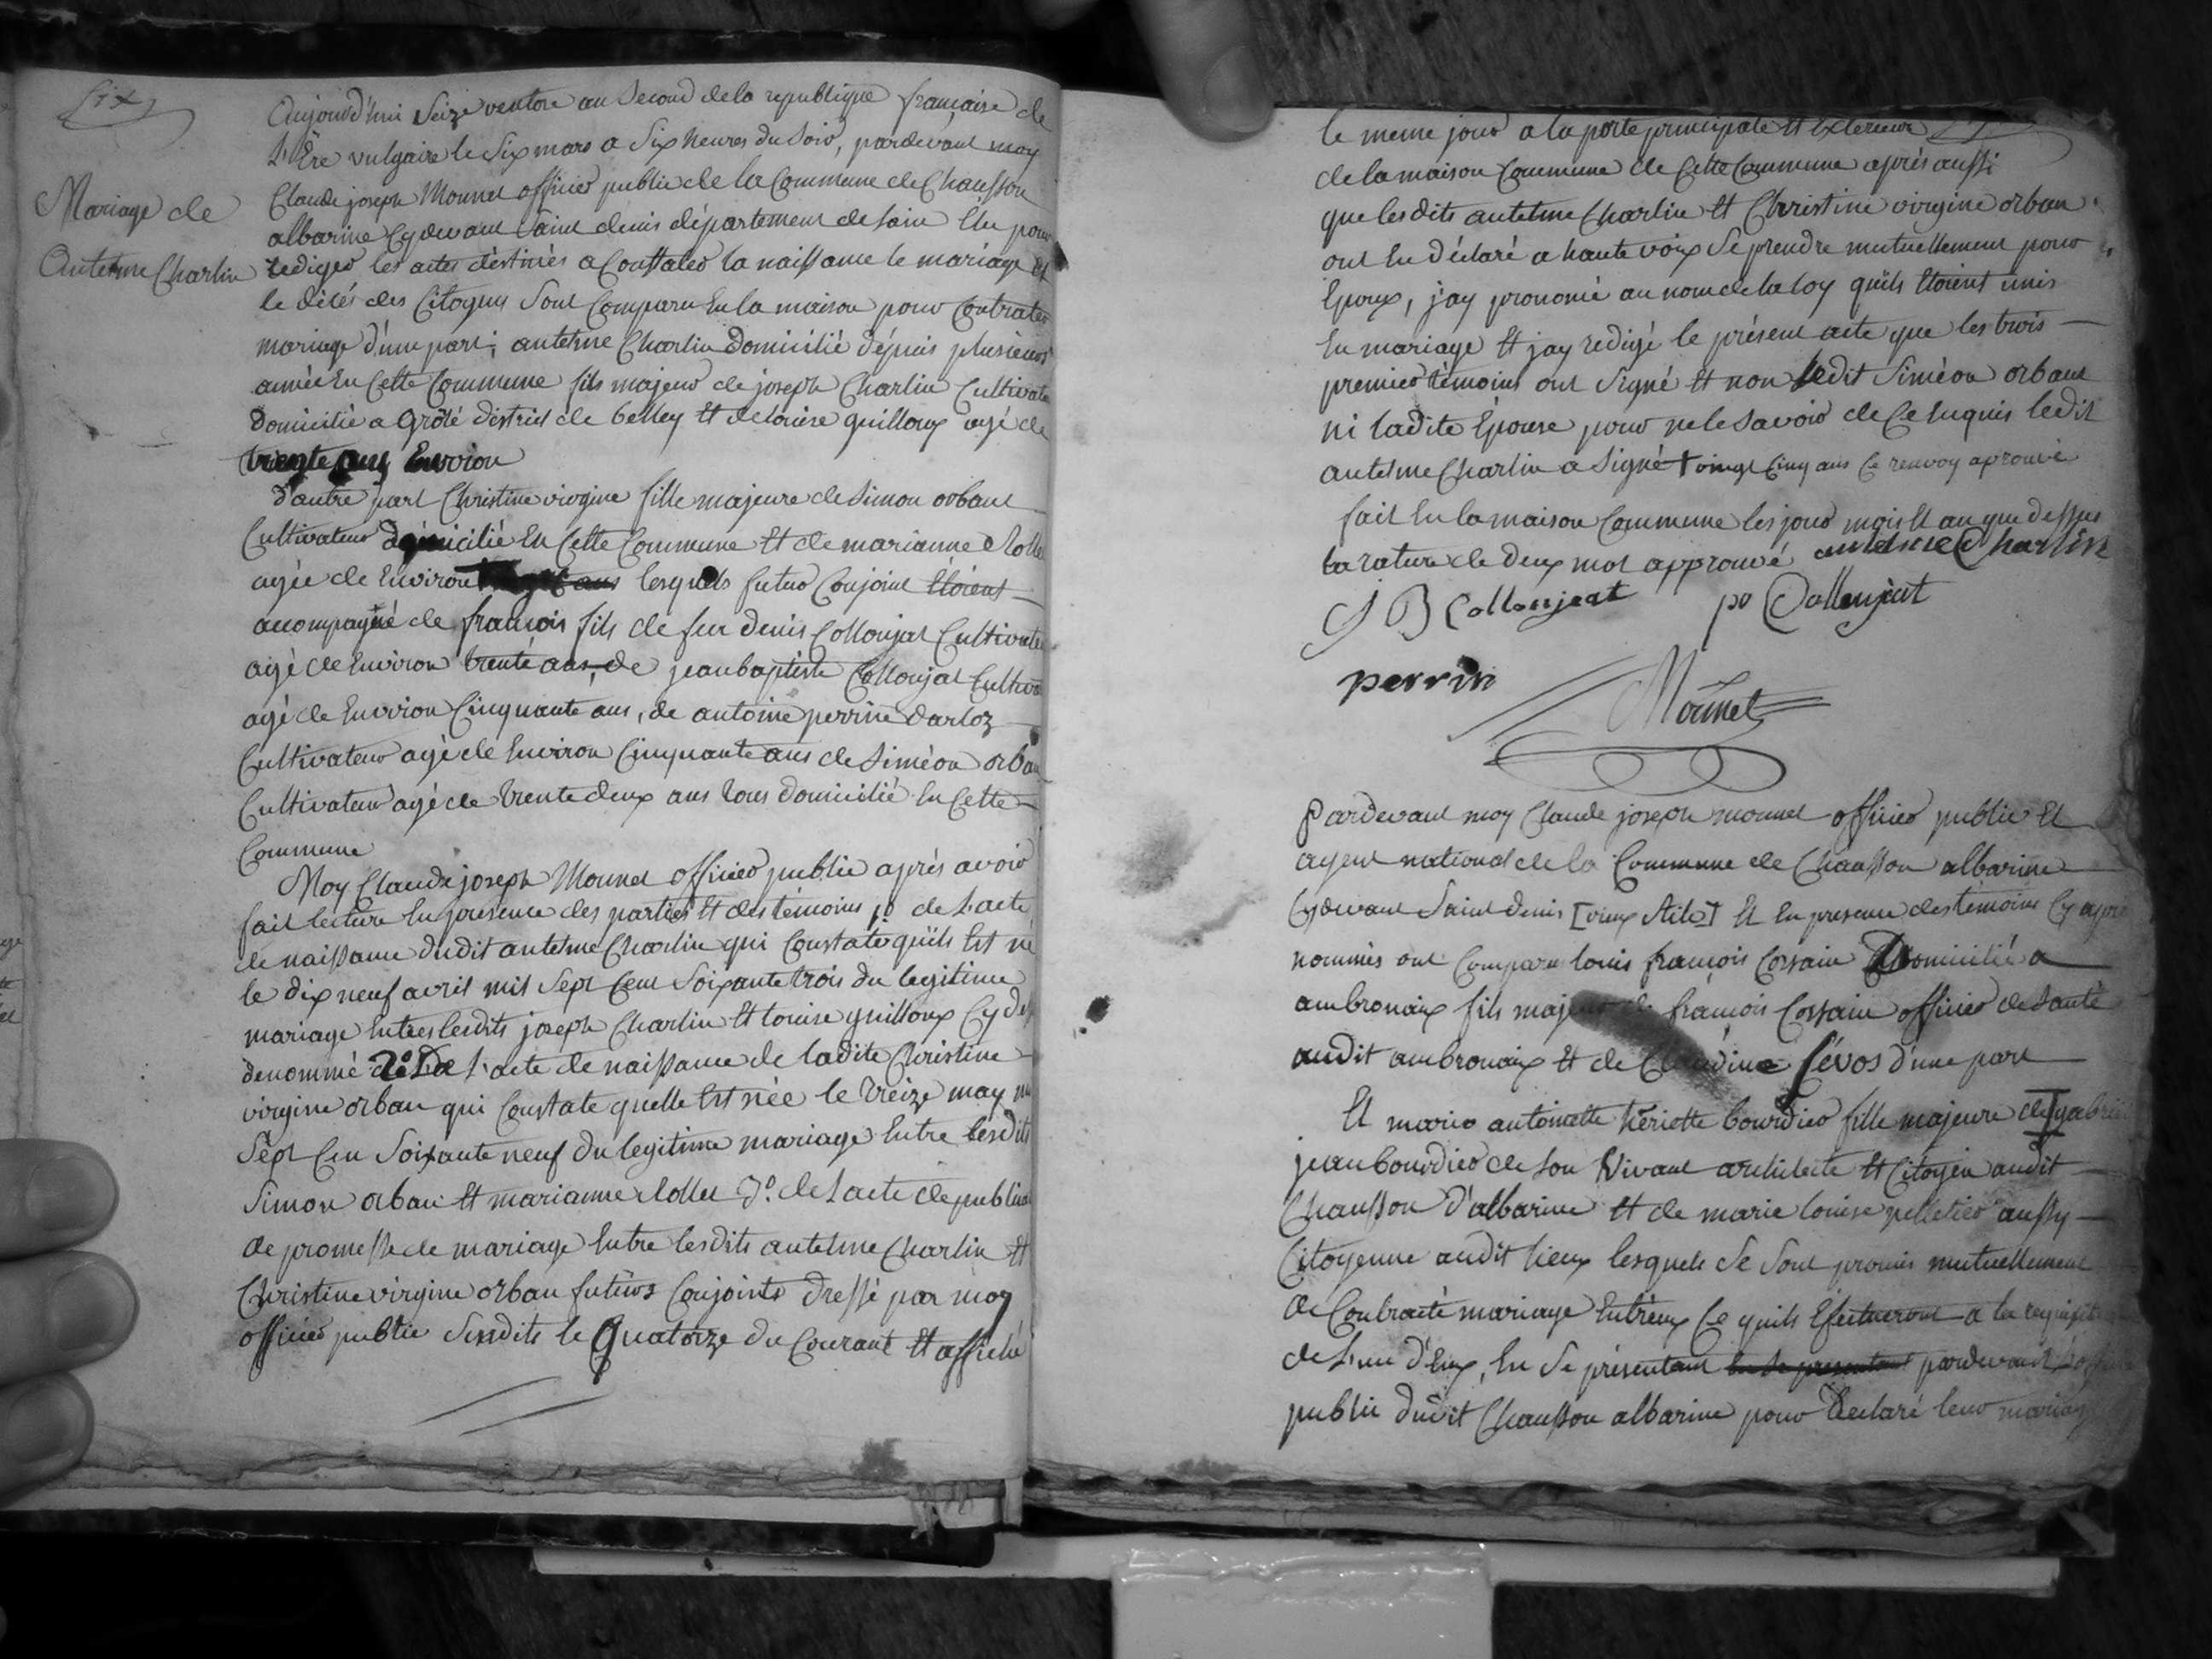 Six
Mariage de
Antelme Charlin
Aujourd'hui Seize ventose an Second de la republique française de
L'Ere vulgaire le Six mars a Six heures du Soir, pardevant moy
Claude joseph Monnet officier public de la Commune de Chausson
albarine Cydevant Saint denis département de Lain Elu pour
rediger les actes déstinés a Constater la naissance le mariage et
le décés des Citoyens Sont Comparu En la maison pour Contrater
mariage d'une part, antelme Charlin domicilié dépuis plusieurs
année En Cette Commune fils majeur de joseph Charlin Cultivateu
domicilié a Grôlé district de belley et de louise guilloux agé de
trente ans Environ
d'autre part Christine virgine fille majeure de Simon orbant
Cultivateur domicilié En Cette Commune Et de marianne Rollet
agée de Environ vingt ans lesquels futur Conjoint Etoient
acompagné de françois fils de feu denis Collonjat Cultivate
agé de Environ trente ans, de jean baptiste Collonjat Cultiva
agé de Environ Cinquante ans, de antoine perrine darloz
Cultivateur agé de Environ Cinquante ans de Siméon orban
Cultivateur agé de trente deux ans tous domicilié En Cette
Commune
Moy Claude joseph Monnet officier public aprés avoir
fait lecture En presence des parties Et des témoins 1º de L'acte
de naissance dudit antelme Charlin qui Constate qu'ils Est né
le dix neuf avril mil Sept Cent Soixante trois du legitime
mariage Entre lesdits joseph Charlin Et louise guilloux Cy des
denommé 2º De L'acte de naissance de ladite Christine
virgine orban qui Constate quelle Est née le treize may m
Sept Cen Soixante neuf du legitime mariage Entre lesdits
Simon orban Et marianne Rollet 3º de Lacte de publica
de promesse de mariage Entre lesdits antelme Charlin Et
Christine virgine orban futurs Conjoints dressé par moy
officier public Susdits le Quatorze du Courant Et affiché
le meme jour a la porte principale Et Exterieure
de la maison Commune de Cette Commune aprés aussi
que lesdits antelme Charlin Et Christine virgine orban
ont Eu déclaré a haute voix Se prendre mutuellement pour
Epoux, j'ay prononcé au nom de la loy qu'ils Etoient unis
En mariage Et jay redigé le présent acte que les trois
premier témoins ont Signé Et non ledit Siméon orbant
ni ladite Epouse pour ne le Savoir de Ce Enquis ledit
antelme Charlin a Signé † vingt Cinq ans Ce renvoy aprouvé
fait En la maison Commune les jour mois Et an que dessus
la rature de deux mot approuvé antelme Charlin
J B Collonjeat po Collonjeat
perrin
Monnet
Pardevant moy Claude joseph monnet officier public Et
agent national de la Commune de Chausson albarine
Cydevant Saint denis [vieux Stile] Et En presence des témoins Cy apré
nommés ont Comparu louis françois Cossain Domicilié a
ambronaix fils majeur de françois Cossain officier de Santé
audit ambronaix Et de Claudine Sévos d'une part
Et marie antoinette hériette bourdier fille majeure de gabriel
jean bourdier de Son Vivant architecte Et Citoyen audit
Chausson d'albarine Et de marie louise pelletier aussy
Citoyenne audit lieux lesquels Se Sont promis mutuellement
de Contracté mariage Entréux Ce quils Efectueront a la requisit
de L'une d'Eux, En Se présentant En Se presentant pardevant
public dudit Chausson albarine pour Declaré leur mariag